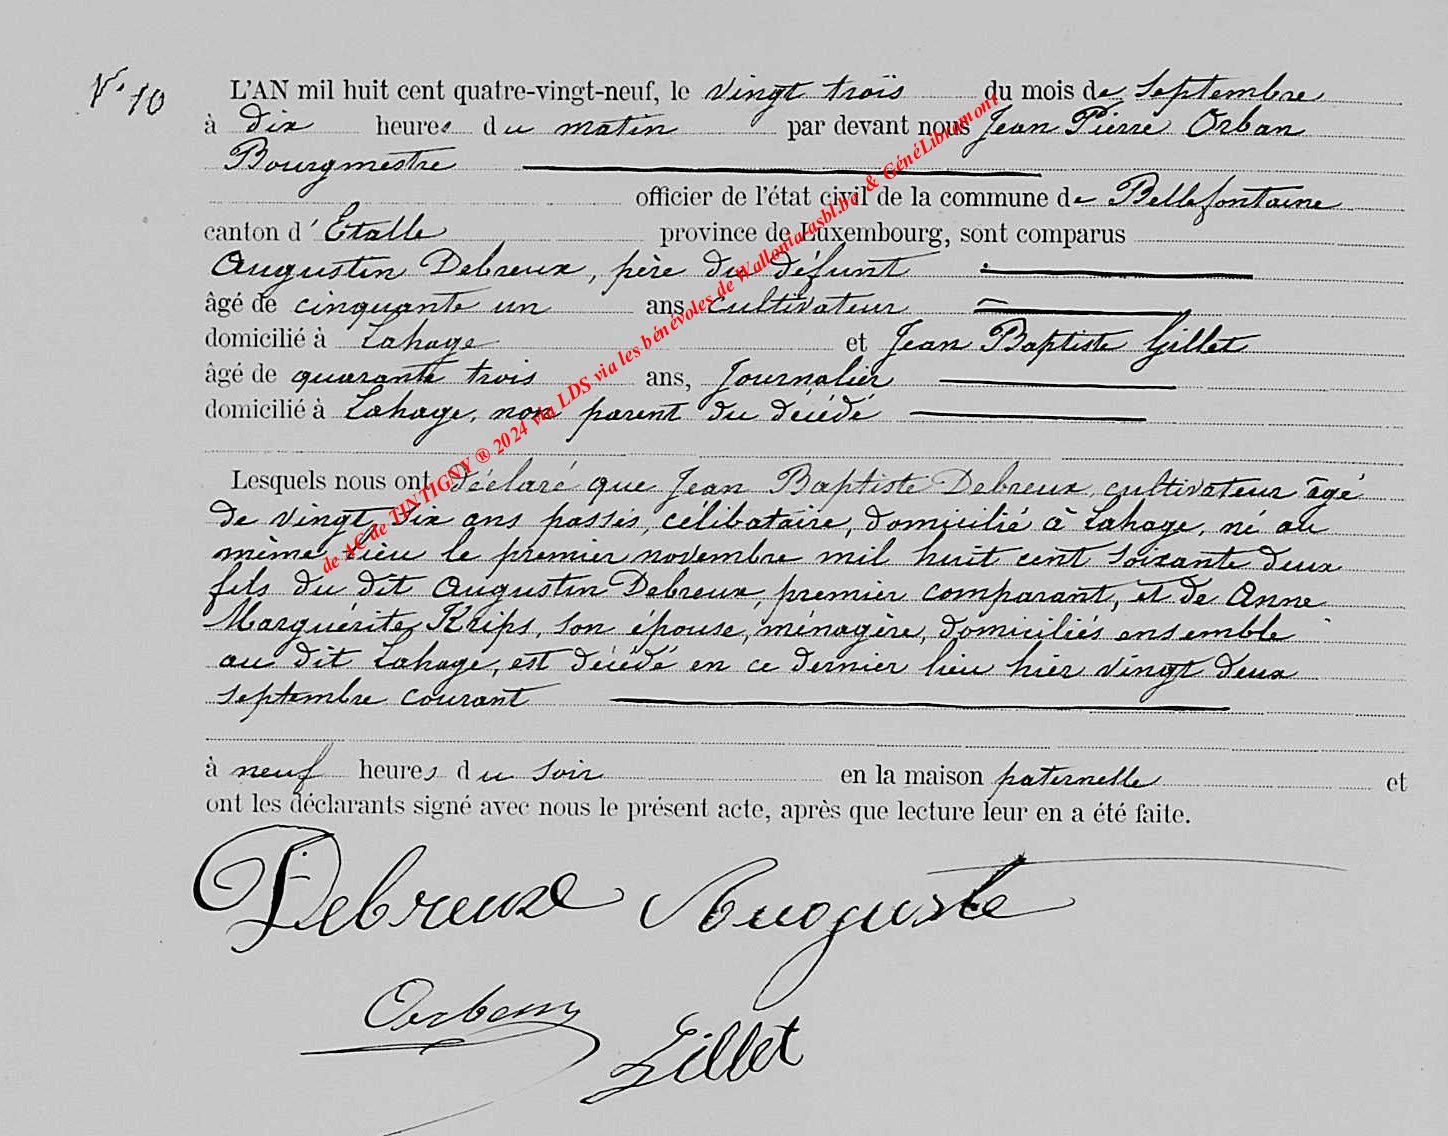 N° 10
L'AN mil huit cent quatre-vingt-neuf, le vingt trois du mois de Septembre
à dix heures du matin par devant nous Jean Pierre Orban
Bourgmestre
officier de l'état civil de la commune de Bellefontaine
canton d'Etalle province de Luxembourg, sont comparus
Augustin Debreux, père du défunt
âgé de cinquante un ans, cultivateur
domicilié à Lahage et Jean Baptiste Gillet
âgé de quarante trois ans, Journalier
domicilié à Lahage, non parent du décédé
Lesquels nous ont déclaré que Jean Baptiste Debreux, cultivateur âgé
de vingt six ans passés, célibataire, domicilié à Lahage, né au
même lieu le premier novembre mil huit cent soixante deux
fils du dit Augustin Debreux, premier comparant, et de Anne
Marguérite Krips, son épouse, ménagère, domiciliés ensemble
au dit Lahage, est décédé en ce dernier lieu hier vingt deux
septembre courant
à neuf heures du soir en la maison paternelle et
ont les déclarants signé avec nous le présent acte, après que lecture leur en a été faite.
Debreux Auguste
Orban
Gillet
de AC de TINTIGNY ® 2024 via LDS via les bénévoles de Wallonia-asbl.be & GénéLibramont